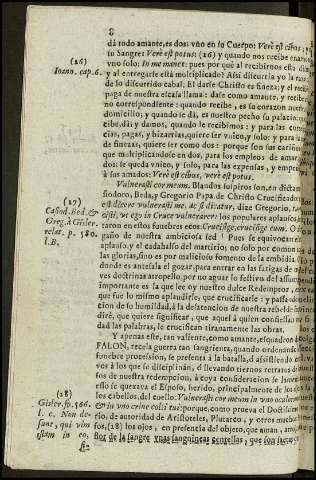 8
dà todo amante, es dos: vno en su Cuerpo: Verè est cibus; y
su Sangre: Verè est potus: (26) y quando nos recibe enam
vno solo: In me manet: pues por què al recibirnos està di
y al entregarse està multiplicado? Assi discurria yo la raz
de lo discurrido cabal. El darse Christo es fineza; y el reci
paga de nuestra escasa llama: dase como amante, y recibe
no correspondiente: quando recibe, es su coraçon nuest
domicilio, y quando se dà, es nuestro pecho su palacio:
cibe, dà; y damos, quando le recibimos: y para las cor
cias, pagas, y bizarrias, quiere ser vnico, y solo: y para l
de finezas, quiere ser como dos: porque son sus cariño
que multiplicandose en dos, para los empleos de amar
dos: se queda vnico, y solo, para las expensas, y empe
à sus amados: Verè est cibus, verè est potus.
(26)
Ioann. cap. 6.
Vulnerasti cor meum. Blandos suspiros son, en dictam
siodoro, Beda, y Gregorio Papa de Christo Crucificado:
est dicere vulnerasti me, ac si dicatur, dize Gregorio, fe
cisti, vt ego in Cruce vulnerarer: los populares aplausos
taron en estos funebres ecos: Crucifige, crucifige eum. O
gaño de nuestra ambiciosa sed! Pues se equivocaron
aplauso, y el cadahalso del martirio; no solo por comun
las glorias, sino es por malicioso fomento de la embidia
donde es antesala el gozar, para entrar en las fatigas de
ves doctrinas atropello, por no aguar lo festivo del assump
importante es la que lee oy nuestro dulce Redemptor,
que fue lo mismo aplaudirle, que crucificarle: y passando
cion de su humildad, à la desatencion de nuestra rebelde
dirè, que quiere significar, que aquel à quien confiessan
dad las palabras, le crucifican tiranamente las obras.
(27)
Casiod. Bed. &
Greg. à Gisler.
relat. p. 580.
l. B.
Y apenas este, tan valiente, como amante, esquadron
FALON, recela guerra tan sangrienta, quando ordenand
funebre procession, se presenta à la batalla, assistiendo
vnos à los que se disciplinan, ò llevando tiernos retratos
sos de nuestra redempcion, à cuya consideracion se lament
esso se quexava el Esposo, herido, principalmente de los
los cabellos, del cuello: Vulnerasti cor meum in vno oculorum
& in vno crine colli tui: porque, como prueva el Doctissimo
rio, de autoridad de Aristoteles, Plutarco, y otros muchos
fos, (28) los ojos, en presencia del objeto, que aman, arroja
flor de la sangre vnas sanguineas centellas, que son
(28)
Gisler. fo. 566.
l. c. Non de-
sunt, qui vim
istam in eo,
si-